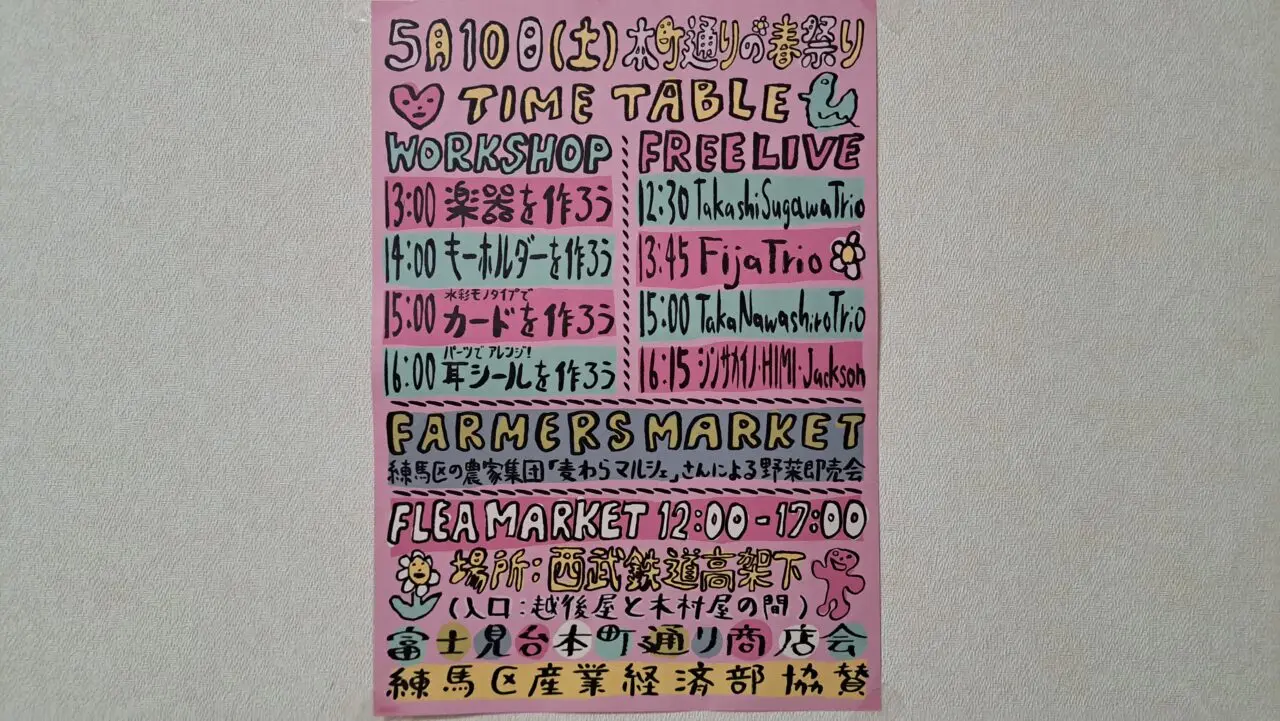 5月10日(土)本町通りの春祭り
TIME TABLE
WORKSHOP
13:00 楽器を作ろう
14:00 キーホルダーを作ろう
水彩モノタイプで
15:00 カードを作ろう
パーツでアレンジ!
16:00 耳シールを作ろう
FREE LIVE
12:30 TakashiSugawaTrio
13:45 FijaTrio
15:00 TakaNawashiroTrio
16:15 シンサカイノ・HIMI・Jackson
FARMERS MARKET
練馬区の農家集団「麦わらマルシェ」さんによる野菜即売会
FLEA MARKET 12:00-17:00
場所:西武鉄道高架下
(入口:越後屋と木村屋の間)
富士見台本町通り商店会
練馬区産業経済部協賛